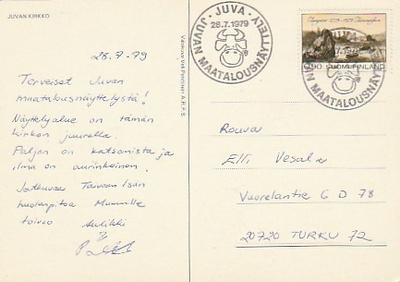 JUVAN KIRKKO
28.7.79
Terveiset Juvan
maatalousnäyttelystä!
Näyttelyalue on tämän
kirkon juurella.
Paljon on katsomista ja
ilma on aurinkoinen.
Jatkuvaa Taivaan Isän
huolenpitoa Mummille
toivoo Aulikki
JUVA
28.7.1979
JUVAN MAATALOUSNÄYTTELY
0,90 SUOMI FINLAND
JUVAN MAATALOUSNÄYTTELY
Rouva
Elli Vesala
Vuorelantie 6 D 78
20720 TURKU 72